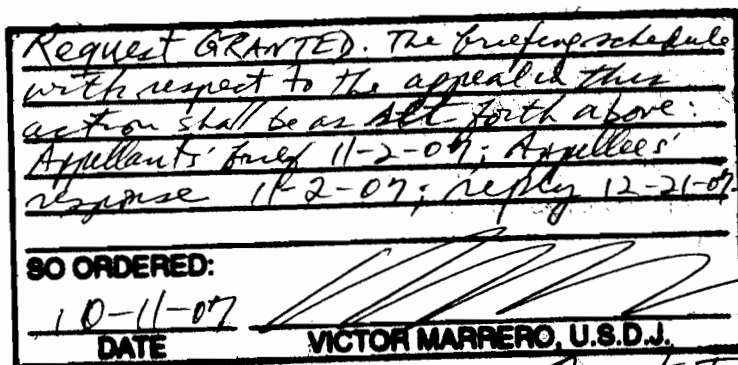 Request GRANTED. The briefing schedule
with respect to the appeal in this
action shall be as set forth above:
Appellants' brief 11-2-07; Appellees'
response 11-2-07; reply 12-21-07.
SO ORDERED:
10-11-07
DATE VICTOR MARRERO, U.S.D.J.